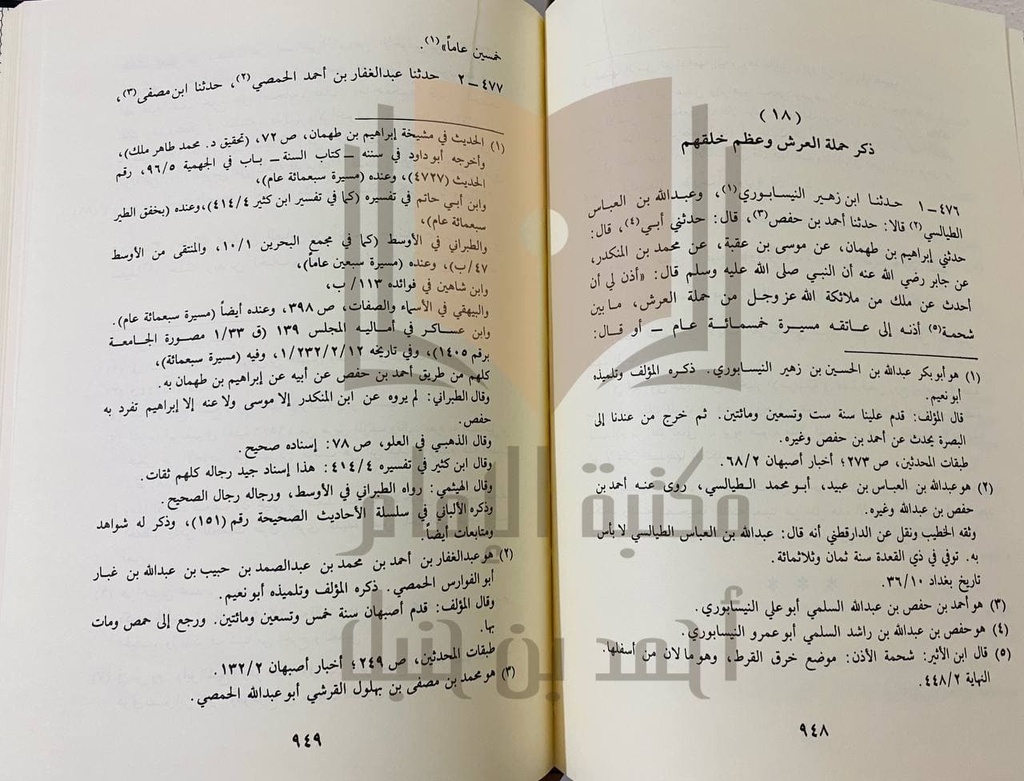 (١٨)
ذكر حملة العرش وعظم خلقهم
٤٧٦ – ١ حدثنا ابن زهير النيسابوري(١)، وعبدالله بن العباس
الطيالسي(٢) قالا: حدثنا أحمد بن حفص(٣)، قال: حدثني أبي(٤)، قال:
حدثني إبراهيم بن طهمان، عن موسى بن عقبة، عن محمد بن المنكدر،
عن جابر رضي الله عنه أن النبي صلى الله عليه وسلم قال: «أذن لي أن
أحدث عن ملك من ملائكة الله عز وجل من حملة العرش، ما بين
شحمة(٥) أذنه إلى عاتقه مسيرة خمسمائة عام – أو قال:
(١) هو أبو بكر عبدالله بن الحسين بن زهير النيسابوري. ذكره المؤلف وتلميذه
أبو نعيم.
قال المؤلف: قدم علينا سنة ست وتسعين ومائتين. ثم خرج من عندنا إلى
البصرة يحدث عن أحمد بن حفص وغيره.
طبقات المحدثين، ص ٢٧٣؛ أخبار أصبهان ٦٨/٢.
(٢) هو عبدالله بن العباس بن عبيد، أبو محمد الطيالسي، روى عنه أحمد بن
حفص بن عبدالله وغيره.
وثقه الخطيب ونقل عن الدارقطني أنه قال: عبدالله بن العباس الطيالسي لا بأس
به. توفي في ذي القعدة سنة ثمان وثلاثمائة.
تاريخ بغداد ٣٦/١٠.
(٣) هو أحمد بن حفص بن عبدالله السلمي أبو علي النيسابوري.
(٤) هو حفص بن عبدالله بن راشد السلمي أبو عمرو النيسابوري.
(٥) قال ابن الأثير: شحمة الأذن: موضع خرق القرط، وهو ما لان من أسفلها.
النهاية ٤٤٨/٢.
٩٤٨
خمسين عاماً»(١).
٤٧٧ – ٢ حدثنا عبدالغفار بن أحمد الحمصي(٢)، حدثنا ابن مصفى(٣)،
(١) الحديث في مشيخة إبراهيم بن طهمان، ص ٧٢، (تحقيق د. محمد طاهر ملك)،
وأخرجه أبو داود في سننه – كتاب السنة – باب في الجهمية ٩٦/٥، رقم
الحديث (٤٧٢٧)، وعنده (مسيرة سبعمائة عام)،
وابن أبي حاتم في تفسيره (كما في تفسير ابن كثير ٤١٤/٤)، وعنده (بخفق الطير
سبعمائة عام)،
والطبراني في الأوسط (كما في مجمع البحرين ١٠/١، والمنتقى من الأوسط
٤٧/ب)، وعنده (مسيرة سبعين عاماً)،
وابن شاهين في فوائده ١١٣/ب،
والبيهقي في الأسماء والصفات، ص ٣٩٨، وعنده أيضاً (مسيرة سبعمائة عام).
وابن عساكر في أماليه المجلس ١٣٩ (ق ١/٣٣ مصورة الجامعة
برقم ١٤٠٥)، وفي تاريخه ١/٢٣٢/٢/١٢، وفيه (مسيرة سبعمائة)،
كلهم من طريق أحمد بن حفص عن أبيه عن إبراهيم بن طهمان به.
وقال الطبراني: لم يروه عن ابن المنكدر إلا موسى ولا عنه إلا إبراهيم تفرد به
حفص.
وقال الذهبي في العلو، ص ٧٨: إسناده صحيح.
وقال ابن كثير في تفسيره ٤١٤/٤: هذا إسناد جيد رجاله كلهم ثقات.
وقال الهيثمي: رواه الطبراني في الأوسط، ورجاله رجال الصحيح.
وذكره الألباني في سلسلة الأحاديث الصحيحة رقم (١٥١)، وذكر له شواهد
ومتابعات أيضاً.
(٢) هو عبدالغفار بن أحمد بن محمد بن عبدالصمد بن حبيب بن عبدالله بن غبار
أبو الفوارس الحمصي. ذكره المؤلف وتلميذه أبو نعيم.
وقال المؤلف: قدم أصبهان سنة خمس وتسعين ومائتين. ورجع إلى حمص ومات
بها.
طبقات المحدثين، ص ٢٤٩؛ أخبار أصبهان ١٣٢/٢.
(٣) هو محمد بن مصفى بن بهلول القرشي أبو عبدالله الحمصي.
٩٤٩
مكتبة
أحمد بن حنبل